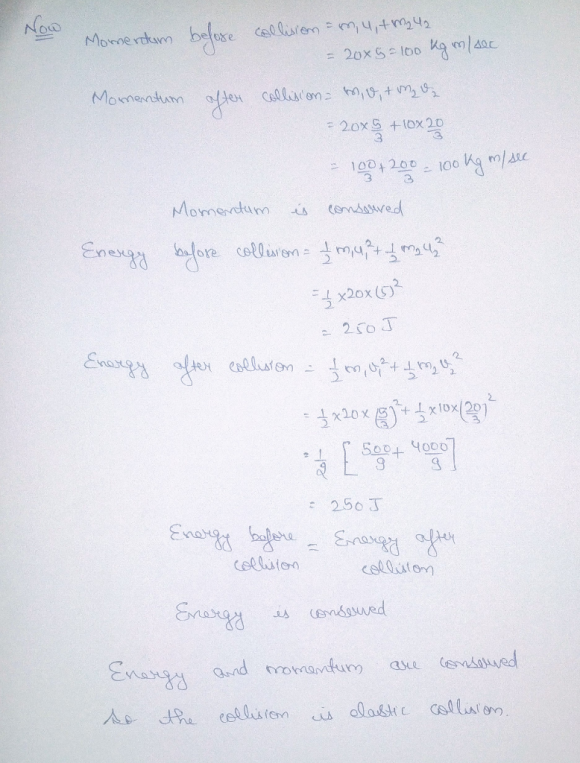 Now
Momentum before collision = m₁u₁+m₂u₂
= 20×5=100 Kg m/sec
Momentum after collision = m₁v₁+m₂v₂
= 20×5/3 +10×20/3
= 100/3 + 200/3 = 100 Kg m/sec
Momentum is conserved
Energy before collision = 1/2 m₁u₁²+ 1/2 m₂u₂²
= 1/2 ×20×(5)²
= 250 J
Energy after collision = 1/2 m₁v₁²+ 1/2 m₂v₂²
= 1/2 ×20×(5/3)²+ 1/2 ×10×(20/3)²
= 1/2 [500/9 + 4000/9]
= 250 J
Energy before collision = Energy after collision
Energy is conserved
Energy and momentum are conserved
so the collision is elastic collision.